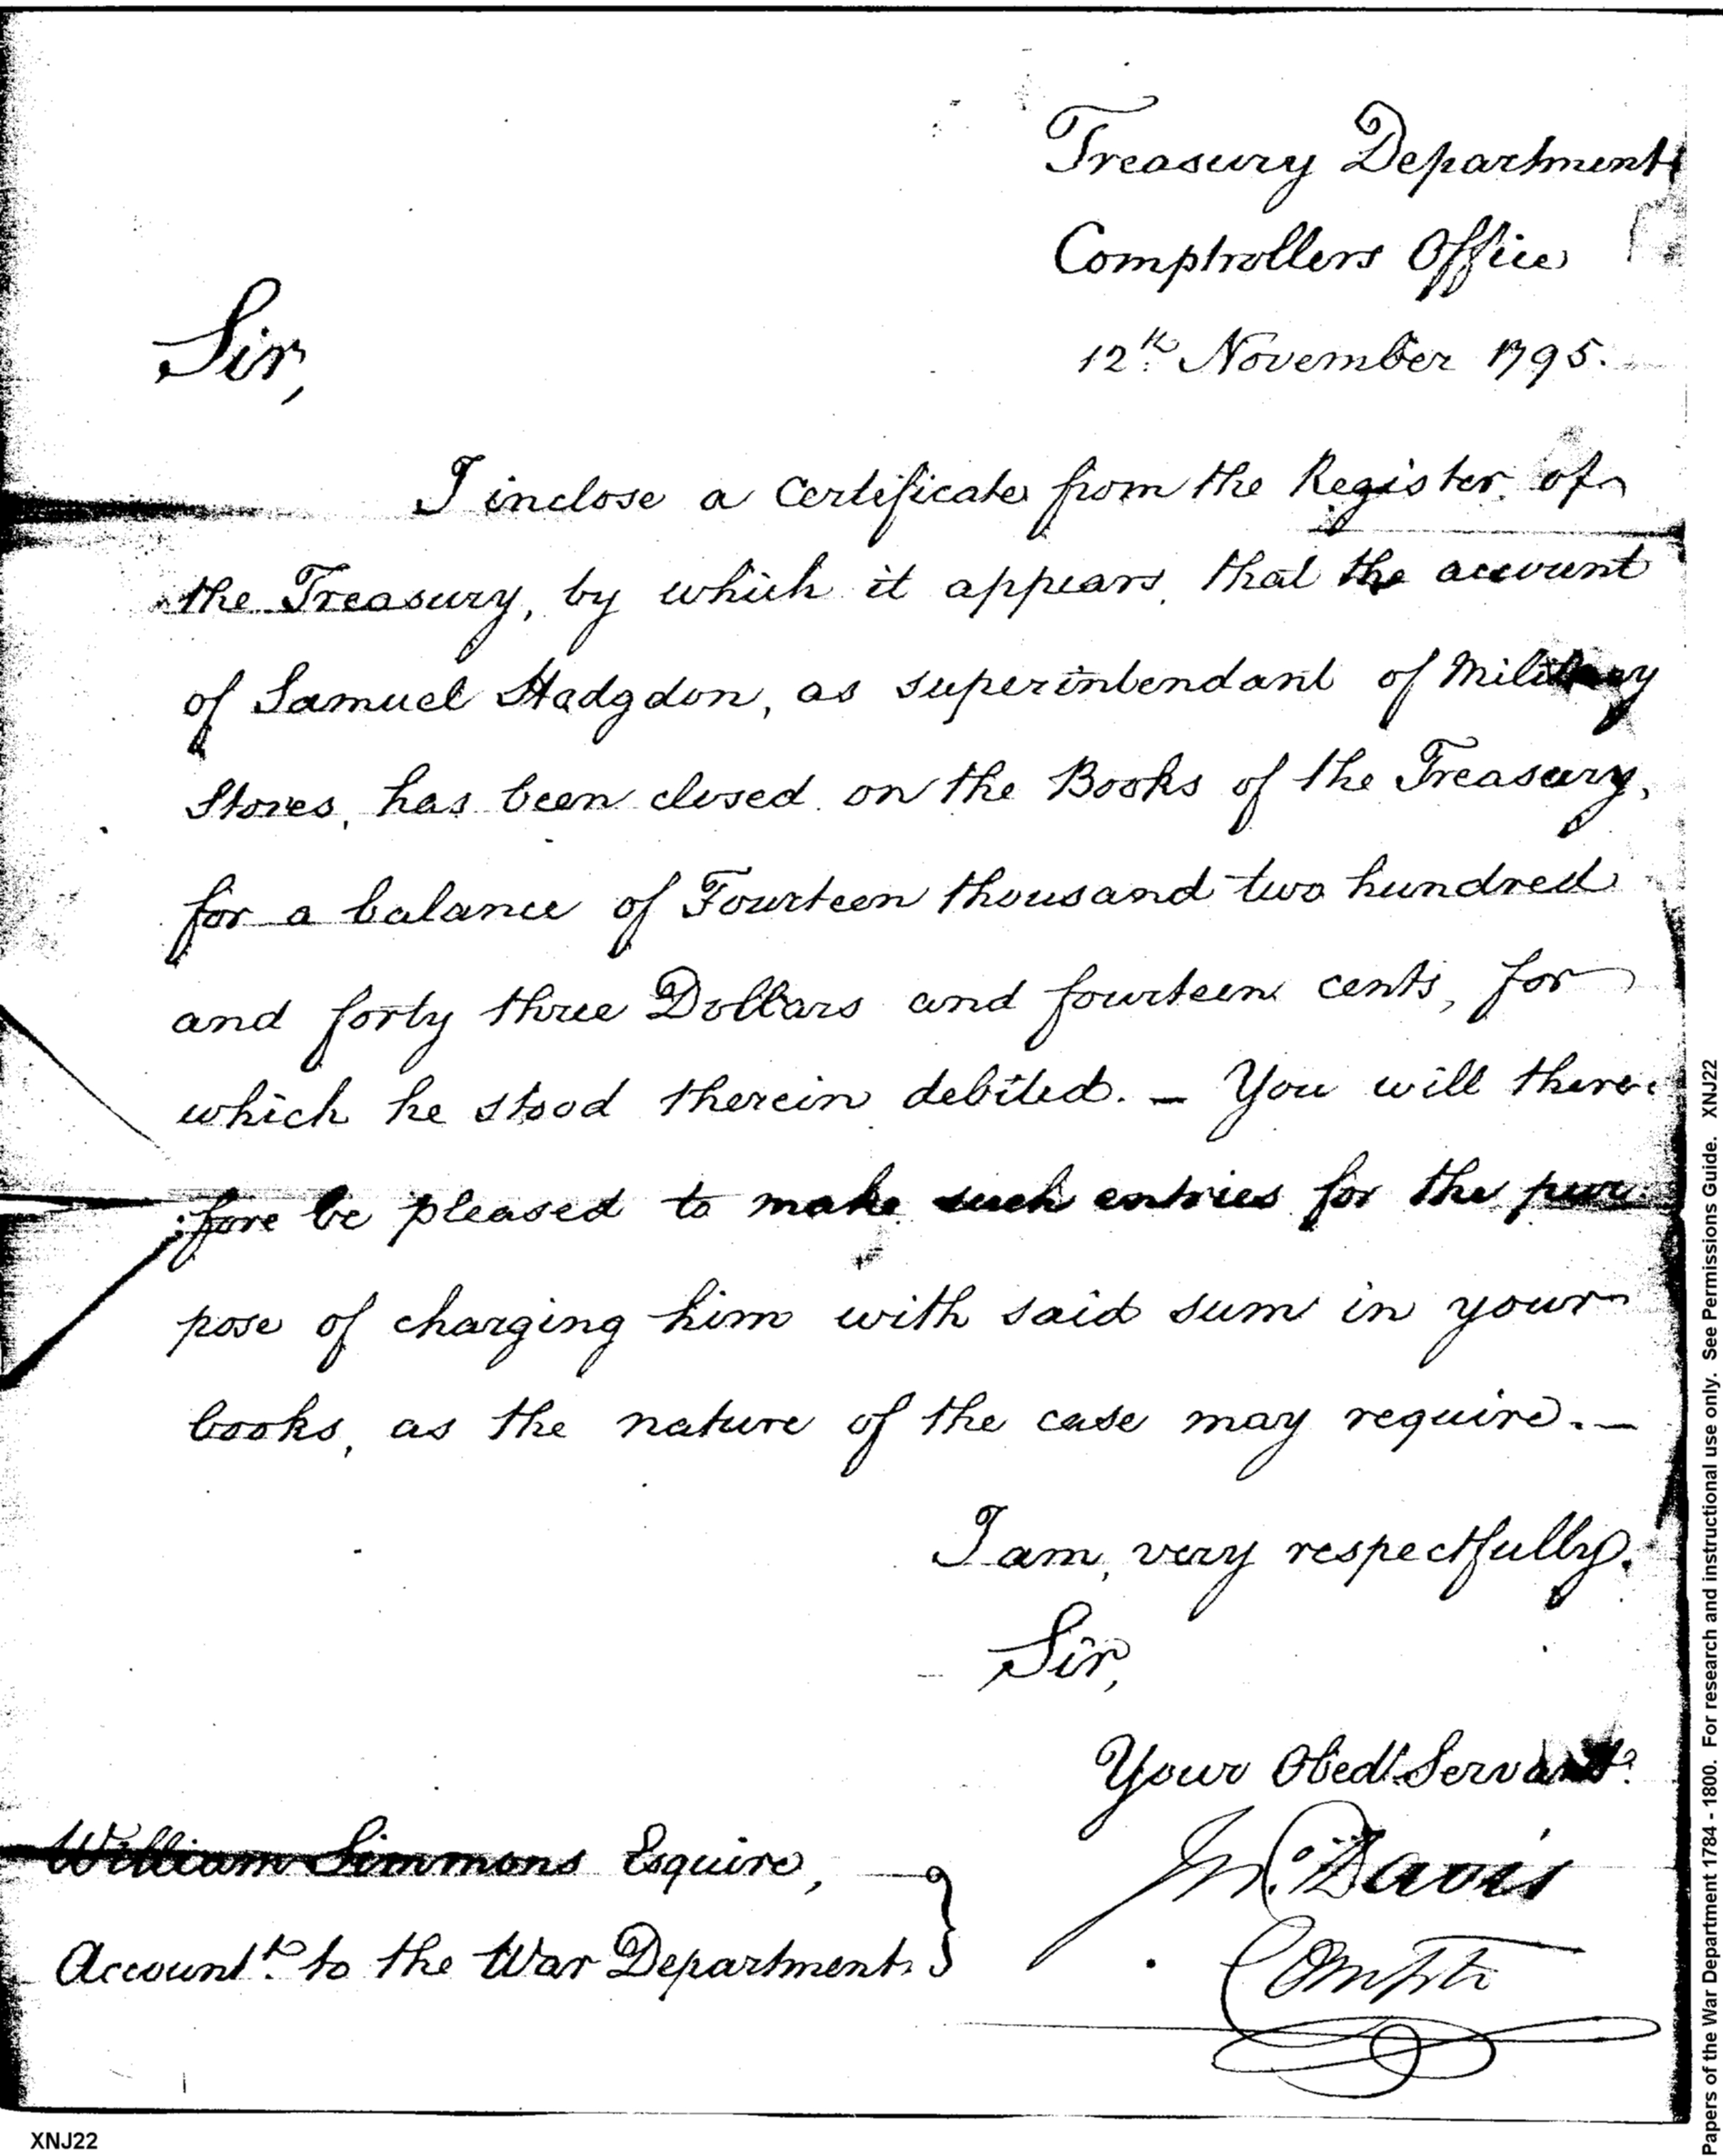 Treasury Department
Comptrollers Office
12th November 1795.
Sir,
I inclose a Certificate from the Register of
the Treasury, by which it appears, that the account
of Samuel Hadgdon, as superintendant of Military
Stores, has been closed on the Books of the Treasury,
for a balance of Fourteen thousand two hundred
and forty three Dollars and fourteen cents, for
which he stood therein debited. — You will there-
:fore be pleased to make such entries for the pur-
pose of charging him with said sum in your
books, as the nature of the case may require. —
I am, very respectfully.
Sir,
Your Obedt. Servant.
Jno. Davis
Comptr
William Simmons Esquire,
Accountt. to the War Department.
XNJ22
Papers of the War Department 1784 - 1800. For research and instructional use only. See Permissions Guide. XNJ22